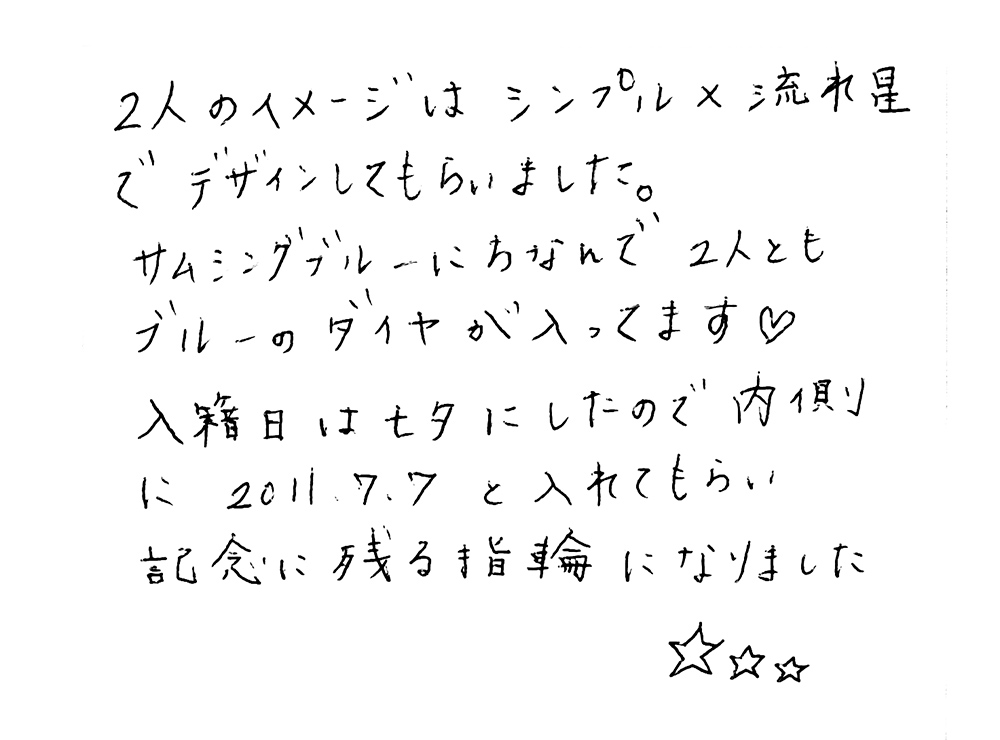 2人のイメージは シンプル×流れ星
で デザインしてもらいました。
サムシングブルーにちなんで 2人とも
ブルーの ダイヤが入ってます♡
入籍日は七夕にしたので内側
に 2011.7.7 と入れてもらい
記念に残る指輪になりました
☆☆☆